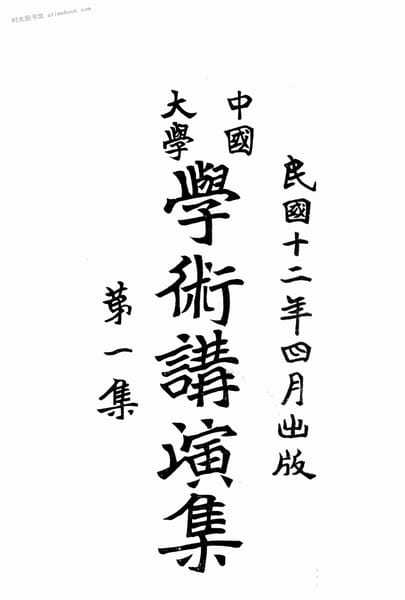 时光图书馆 atimebook.com
民國十二年四月出版
中國
大學
學術講演集
第一集